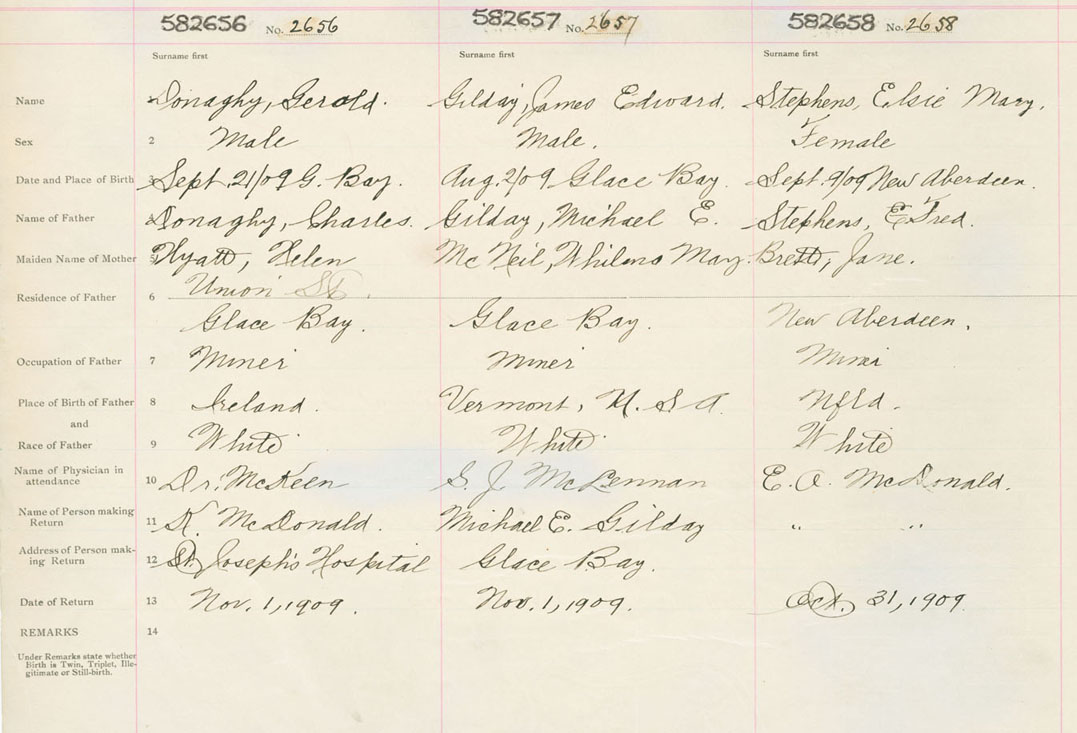 582656 No. 2656 582657 No. 2657 582658 No. 2658
Surname first Surname first Surname first
Name Donaghy, Gerald. Gilday, James Edward. Stephens, Elsie Mary.
Sex 2 Male Male. Female
Date and Place of Birth 3 Sept. 21/09 G. Bay. Aug. 2/09 Glace Bay. Sept. 9/09 New Aberdeen.
Name of Father 4 Donaghy, Charles. Gilday, Michael E. Stephens, E. Fred.
Maiden Name of Mother 5 Hyatt, Helen Mc Neil, Whilena May. Brett, Jane.
Union St.
Residence of Father 6
Glace Bay. Glace Bay. New Aberdeen.
Occupation of Father 7 Miner Miner Miner
Place of Birth of Father 8 Ireland. Vermont, U. S A. Nfld.
and
Race of Father 9 White White White
Name of Physician in
attendance 10 Dr. McKeen S. J. McLennan E. A. McDonald.
Name of Person making
Return 11 K McDonald. Michael E. Gilday " "
Address of Person mak-
ing Return 12 St. Joseph's Hospital Glace Bay.
Date of Return 13 Nov. 1, 1909. Nov. 1, 1909. Oct. 31, 1909.
REMARKS 14
Under Remarks state whether
Birth is Twin, Triplet, Ille-
gitimate or Still-birth.